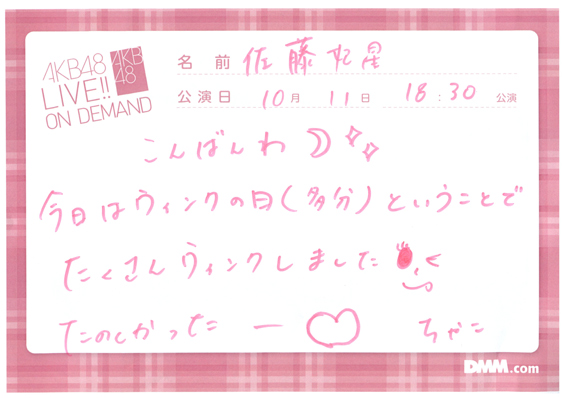 AKB48
LIVE!!
ON DEMAND
AKB
48
名前 佐藤妃星
公演日 10月 11日 18:30 公演
こんばんわ
今日はウィンクの日(多分)ということで
たくさんウィンクしました
たのしかったー♡ ちゃこ
DMM.com